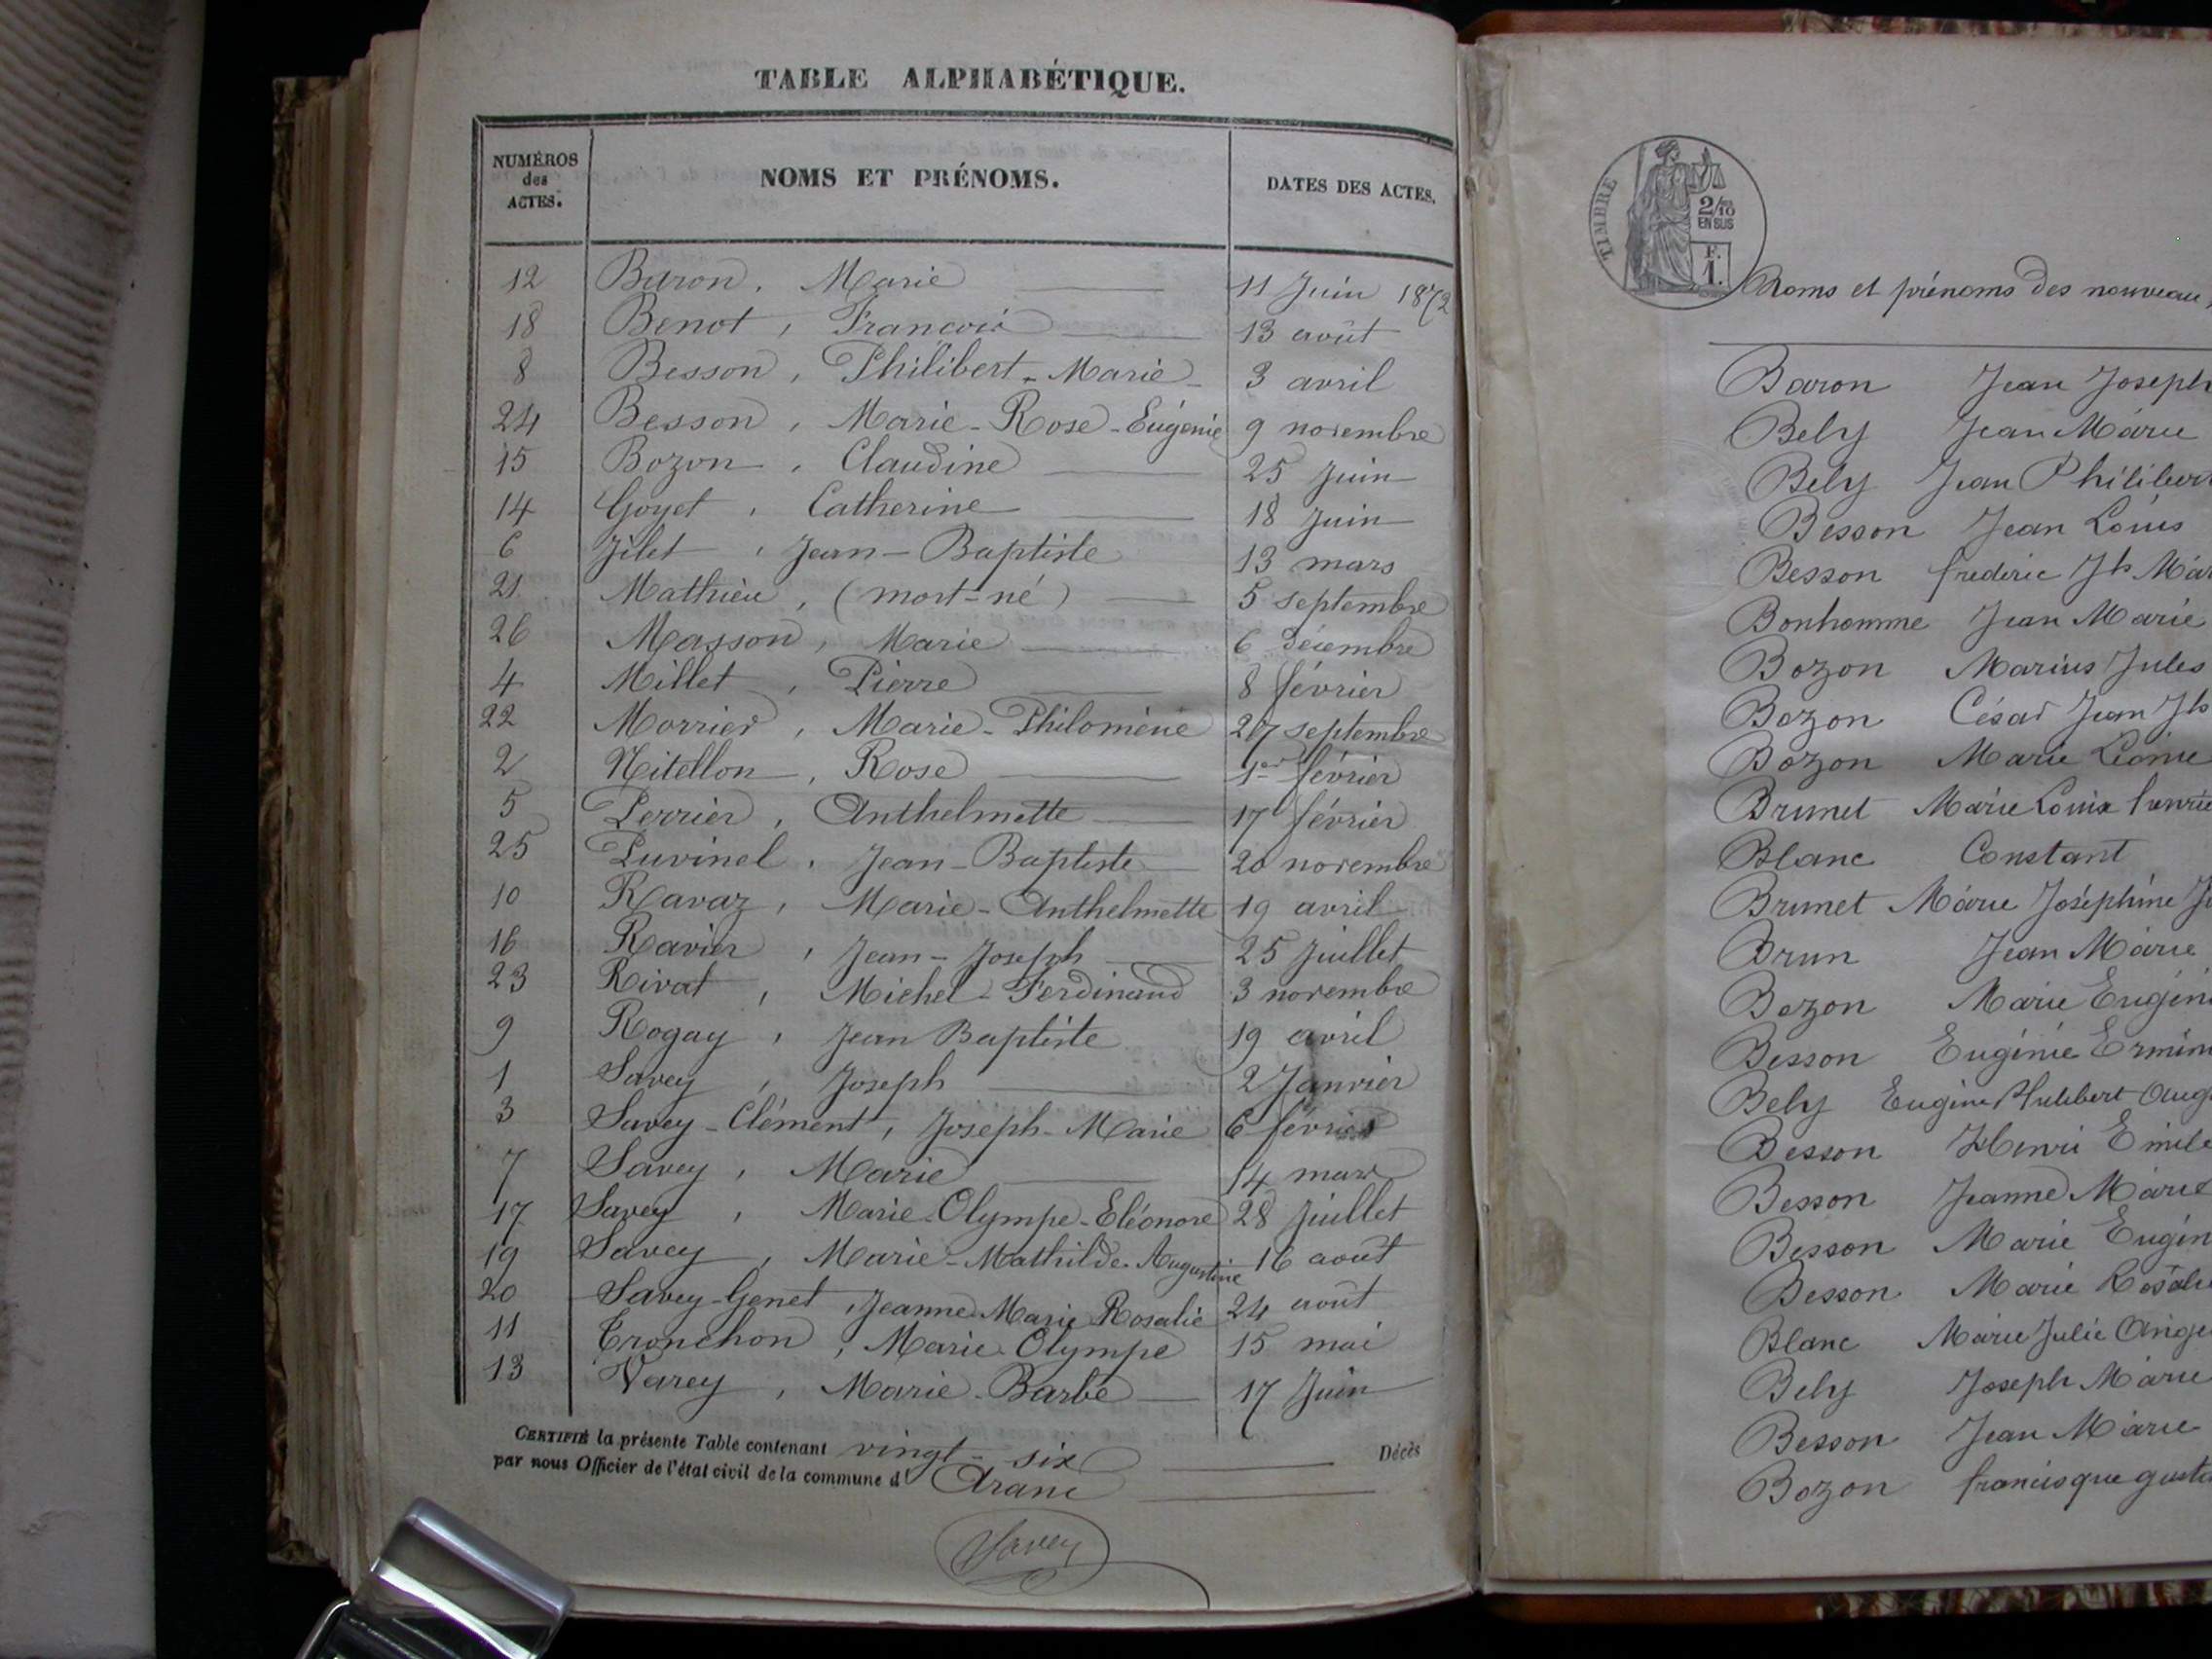 TABLE ALPHABÉTIQUE.
NUMÉROS des ACTES. NOMS ET PRÉNOMS. DATES DES ACTES.
12 Baron, Marie 11 Juin 1872
18 Benot, François 13 août
8 Besson, Philibert-Marie 3 avril
24 Besson, Marie-Rose-Eugénie 9 novembre
15 Bozon, Claudine 25 Juin
14 Goyet, Catherine 18 Juin
6 Jilet, Jean-Baptiste 13 mars
21 Mathieu, (mort-né) 5 septembre
26 Masson, Marie 6 décembre
4 Millet, Pierre 8 février
22 Morrier, Marie-Philomène 27 septembre
2 Nitellon, Rose 1er février
5 Perrier, Anthelmette 17 février
25 Puvinel, Jean-Baptiste 20 novembre
10 Ravaz, Marie-Anthelmette 19 avril
16 Ravier, Jean-Joseph 25 Juillet
23 Rivat, Michel-Ferdinand 3 novembre
9 Rogay, Jean Baptiste 19 avril
1 Savey, Joseph 2 Janvier
3 Savey-Clément, Joseph-Marie 6 février
7 Savey, Marie 14 mars
17 Savey, Marie-Olympe-Eléonore 28 Juillet
19 Savey, Marie-Mathilde-Augustine 16 août
20 Savey-Genet, Jeanne Marie Rosalie 24 août
11 Tronchon, Marie-Olympe 15 mai
13 Varey, Marie-Barbe 17 Juin
CERTIFIÉ la présente Table contenant vingt-six Décès
par nous Officier de l'état civil de la commune d' Aranc
Savey
TIMBRE
2/10
EN SUS
F.
1.
Noms et prénoms des nouveau
Baron Jean Joseph
Bely Jean Marie
Bely Jean Philibert
Besson Jean Louis
Besson frederic Jh Mar
Bonhomme Jean Marie
Bozon Marius Jules
Bozon César Jean Jh
Bozon Marie Léonie
Brunet Marie Louise henrie
Blanc Constant
Brunet Marie Joséphine J
Brun Jean Marie
Bozon Marie Eugéni
Besson Eugénie Ermin
Bely Eugène Philibert Aug
Besson Henri Emile
Besson Jeanne Marie
Besson Marie Eugén
Besson Marie Rosali
Blanc Marie Julie Ange
Bely Joseph Marie
Besson Jean Marie
Bozon francisque gusta